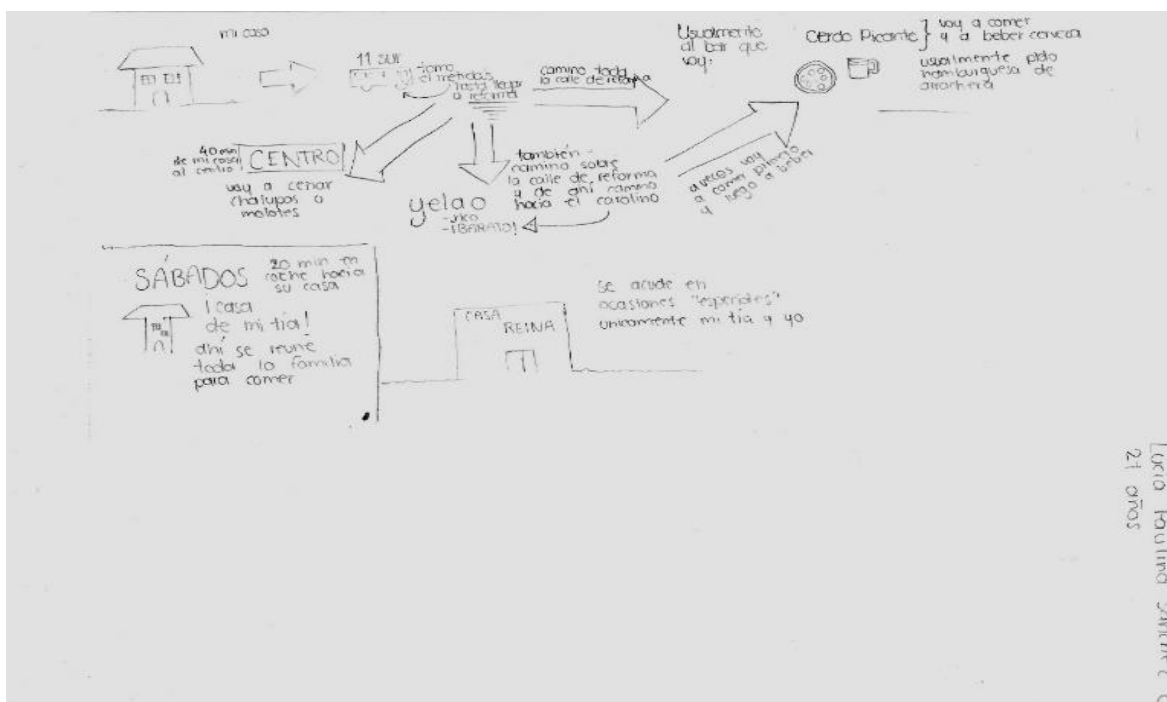 mi casa
11 sur
tomo
el metrobús
hasta llegar
a reforma
camino toda
la calle de reforma
Usualmente
al bar que
voy:
Cerdo Picante
voy a comer
y a beber cerveza
usualmente pido
hamburguesa de
arrachera
40 min
de mi casa
al centro
CENTRO
voy a cenar
chalupas o
molotes
yelao
-rico
-¡BARATO!
también
camino sobre
la calle de reforma
y de ahí camino
hacia el carolino
a veces voy
a comer primero
y luego a beber
SÁBADOS
20 min en
coche hacia
su casa
¡casa
de mi tía!
ahí se reune
toda la familia
para comer
CASA
REINA
se acude en
ocasiones "especiales"
unicamente mi tía y yo
Paulina
21 años